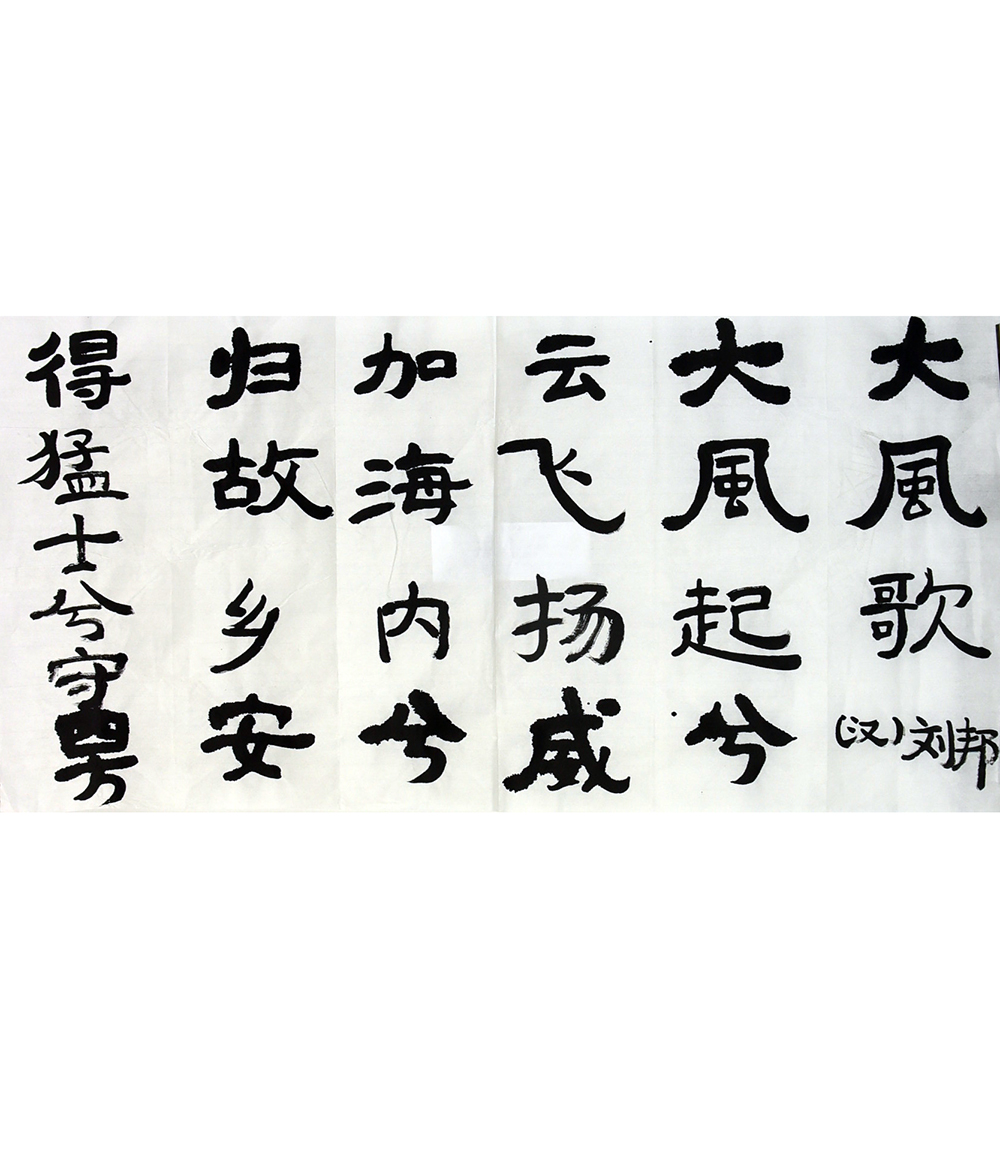 大風歌(汉)刘邦
大風起兮
云飞扬威
加海内兮
归故乡安
得猛士兮守四方